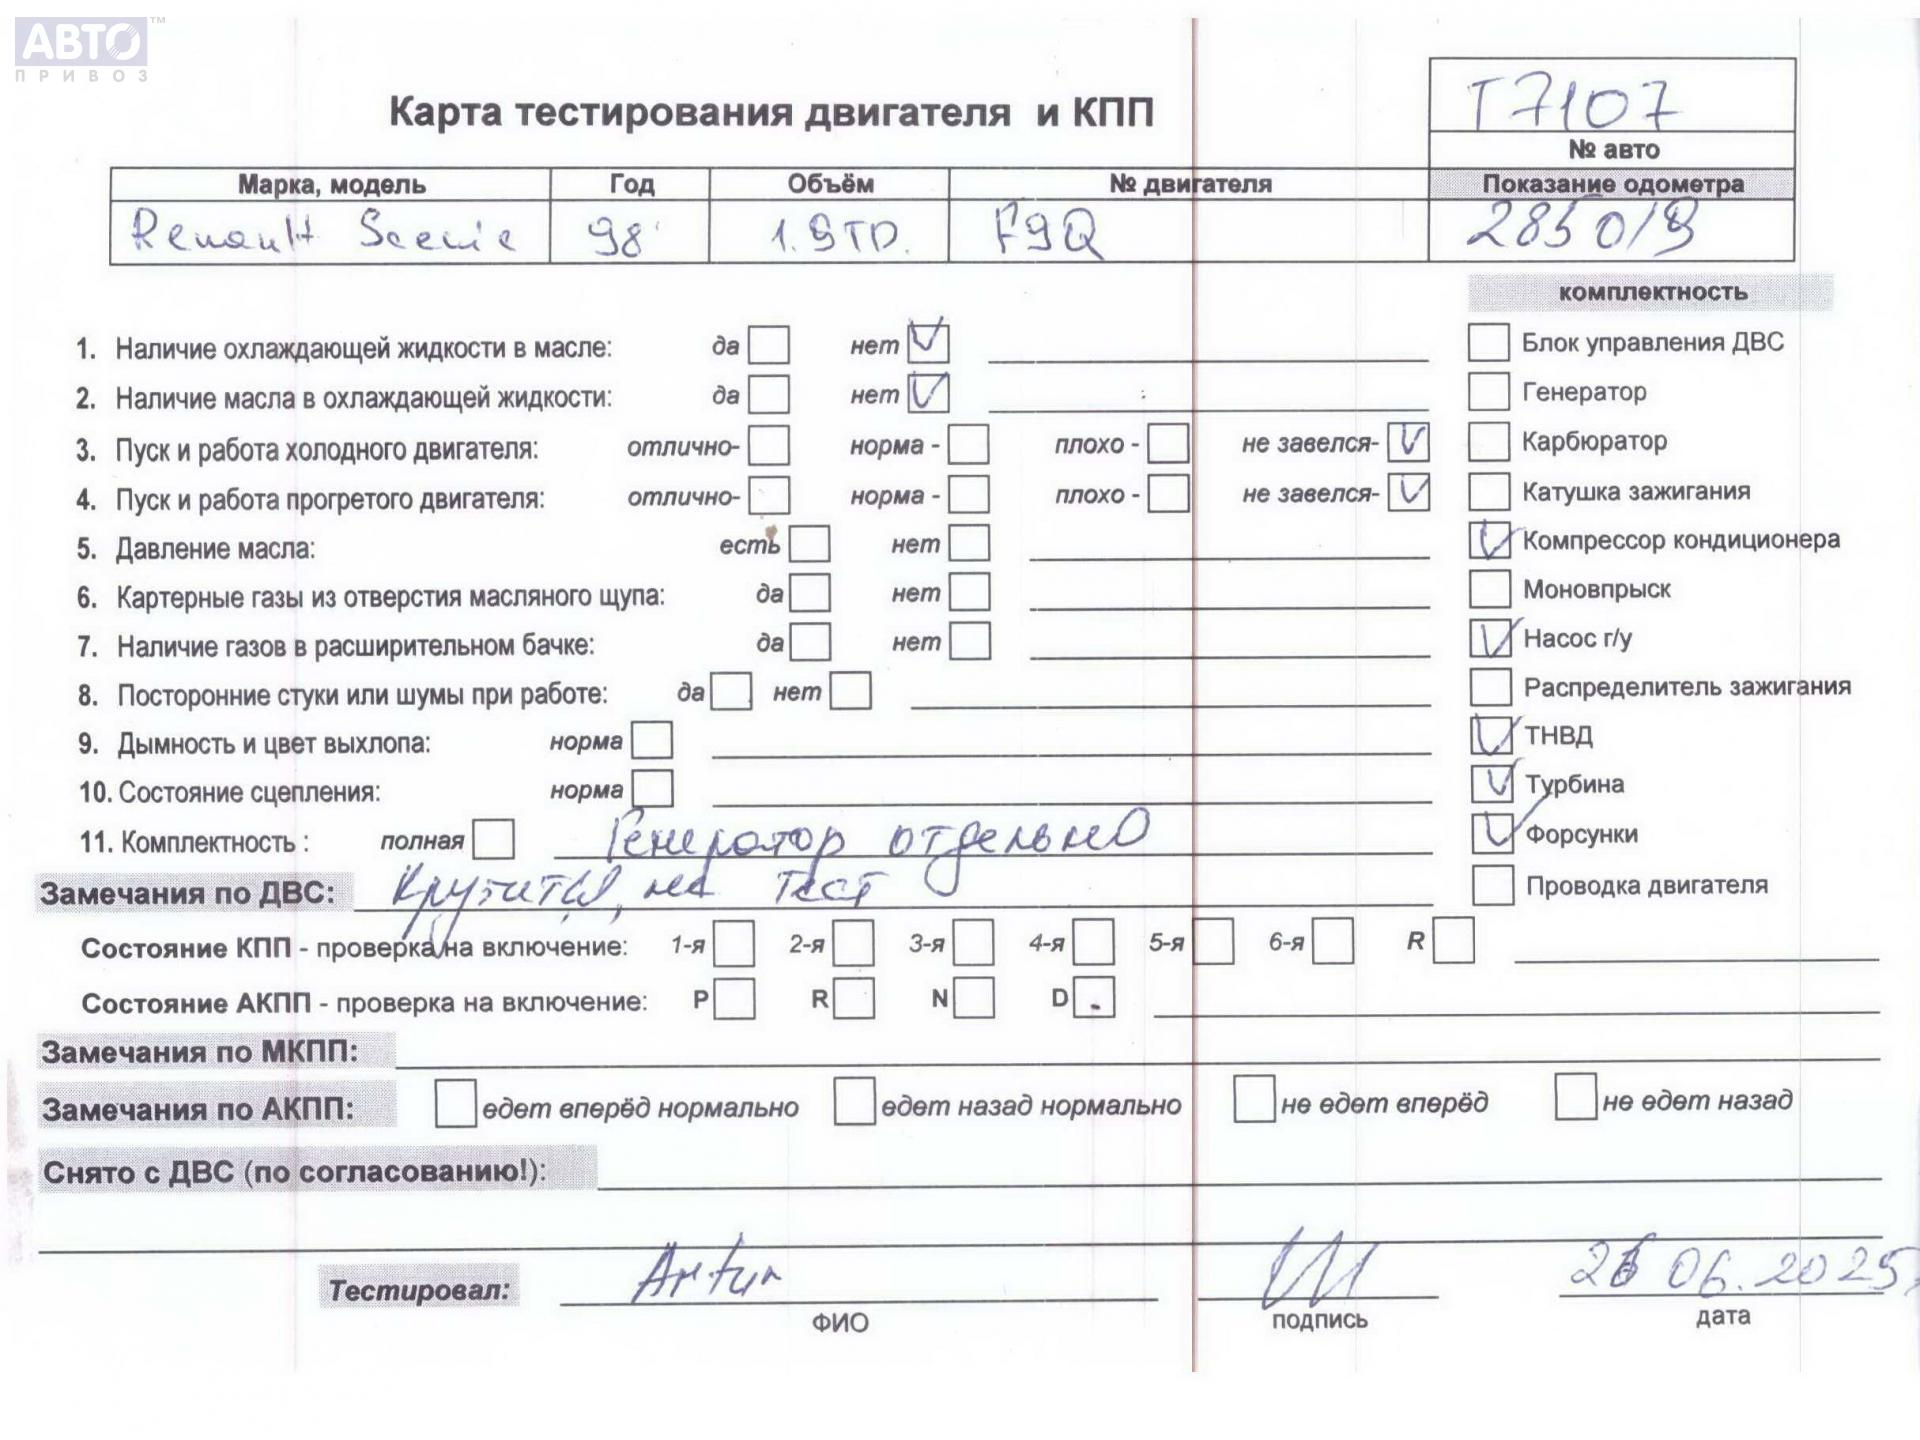 АВТО™
ПРИВОЗ
Карта тестирования двигателя и КПП
T7107
№ авто
Марка, модель Год Объём № двигателя Показание одометра
Renault Scenic 98' 1.9TD. F9Q
комплектность
1. Наличие охлаждающей жидкости в масле: да нет
Блок управления ДВС
2. Наличие масла в охлаждающей жидкости: да нет
Генератор
3. Пуск и работа холодного двигателя: отлично- норма - плохо - не завелся-
Карбюратор
4. Пуск и работа прогретого двигателя: отлично- норма - плохо - не завелся-
Катушка зажигания
5. Давление масла: есть нет
Компрессор кондиционера
6. Картерные газы из отверстия масляного щупа: да нет
Моновпрыск
7. Наличие газов в расширительном бачке: да нет
Насос г/у
8. Посторонние стуки или шумы при работе: да нет
Распределитель зажигания
9. Дымность и цвет выхлопа: норма
ТНВД
10. Состояние сцепления: норма
Турбина
11. Комплектность : полная Генератор отдельно
Форсунки
Замечания по ДВС: Крутится, на тест
Проводка двигателя
Состояние КПП - проверка на включение: 1-я 2-я 3-я 4-я 5-я 6-я R
Состояние АКПП - проверка на включение: P R N D
Замечания по МКПП:
Замечания по АКПП: едет вперёд нормально едет назад нормально не едет вперёд не едет назад
Снято с ДВС (по согласованию!):
Тестировал: Artur 06.2025
ФИО подпись дата